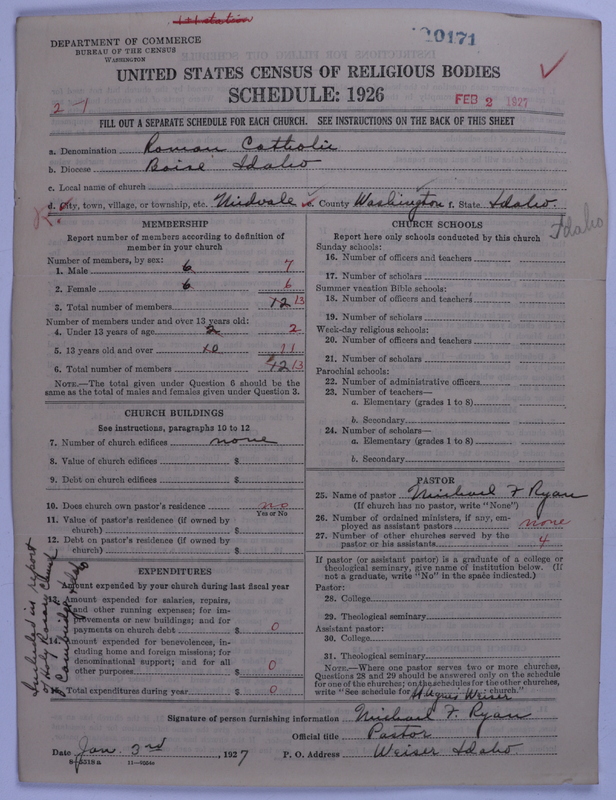 20171
DEPARTMENT OF COMMERCE
BUREAU OF THE CENSUS
WASHINGTON
UNITED STATES CENSUS OF RELIGIOUS BODIES
SCHEDULE: 1926
2-1
FEB 2 1927
FILL OUT A SEPARATE SCHEDULE FOR EACH CHURCH. SEE INSTRUCTIONS ON THE BACK OF THIS SHEET
a. Denomination Roman Catholic
b. Diocese Boise Idaho
c. Local name of church
d. City, town, village, or township, etc. Midvale e. County Washington f. State Idaho.
Idaho
MEMBERSHIP
Report number of members according to definition of
member in your church
Number of members, by sex:
1. Male 6 7
2. Female 6 6
3. Total number of members 12 13
Number of members under and over 13 years old:
4. Under 13 years of age 2 2
5. 13 years old and over 10 11
6. Total number of members 12 13
NOTE.—The total given under Question 6 should be the
same as the total of males and females given under Question 3.
CHURCH BUILDINGS
See instructions, paragraphs 10 to 12
7. Number of church edifices none
8. Value of church edifices $
9. Debt on church edifices $
10. Does church own pastor's residence no
Yes or No
11. Value of pastor's residence (if owned by
church) $
12. Debt on pastor's residence (if owned by
church) $
EXPENDITURES
Amount expended by your church during last fiscal year
13. Amount expended for salaries, repairs,
and other running expenses; for im-
provements or new buildings; and for
payments on church debt $ 0
Amount expended for benevolences, in-
cluding home and foreign missions; for
denominational support; and for all
other purposes $ 0
Total expenditures during year $ 0
Included in report
of Holy Rosary Church
of Cambridge Idaho
CHURCH SCHOOLS
Report here only schools conducted by this church
Sunday schools:
16. Number of officers and teachers
17. Number of scholars
Summer vacation Bible schools:
18. Number of officers and teachers
19. Number of scholars
Week-day religious schools:
20. Number of officers and teachers
21. Number of scholars
Parochial schools:
22. Number of administrative officers
23. Number of teachers—
a. Elementary (grades 1 to 8)
b. Secondary
24. Number of scholars—
a. Elementary (grades 1 to 8)
b. Secondary
PASTOR
25. Name of pastor Michael F Ryan
(If church has no pastor, write "None")
26. Number of ordained ministers, if any, em-
ployed as assistant pastors none
27. Number of other churches served by the
pastor or his assistants 4
If pastor (or assistant pastor) is a graduate of a college or
theological seminary, give name of institution below. (If
not a graduate, write "No" in the space indicated.)
Pastor:
28. College
29. Theological seminary
Assistant pastor:
30. College
31. Theological seminary
NOTE.—Where one pastor serves two or more churches,
Questions 28 and 29 should be answered only on the schedule
for one of the churches; on the schedules for the other churches,
write "See schedule for St Agnes Weiser church."
Signature of person furnishing information Michael F. Ryan
Official title Pastor
Date Jan. 3rd, 1927 P. O. Address Weiser Idaho
8—5318a 11—9554a